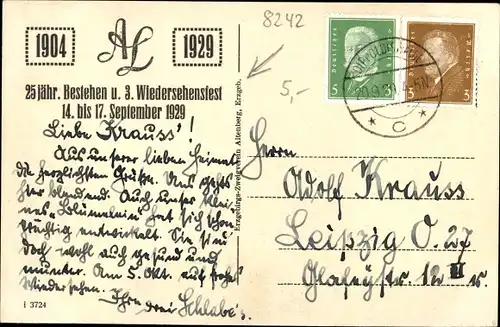 8242
1904 AL 1929
25jähr. Bestehen u. 3. Wiedersehensfest
14. bis 17. September 1929
5,-
Liebe Krauss'!
Aus unserer lieben Heimat
die herzlichsten Grüße. Uns geht's
hier blendend. Auch unser klei-
nes Blümelein hat sich schon
prächtig entwickelt. Sie sind
doch wohl auch gesund und
munter. Am 5. Okt. auf frohes
Wiedersehen. Ihre drei Schlabe's.
i 3724
Erzgebirgs-Zweigverein Altenberg, Erzgeb.
Deutsches
5 5
3 3
20.9.
C
Herrn
Adolf Krauss
Leipzig O. 27
12 III